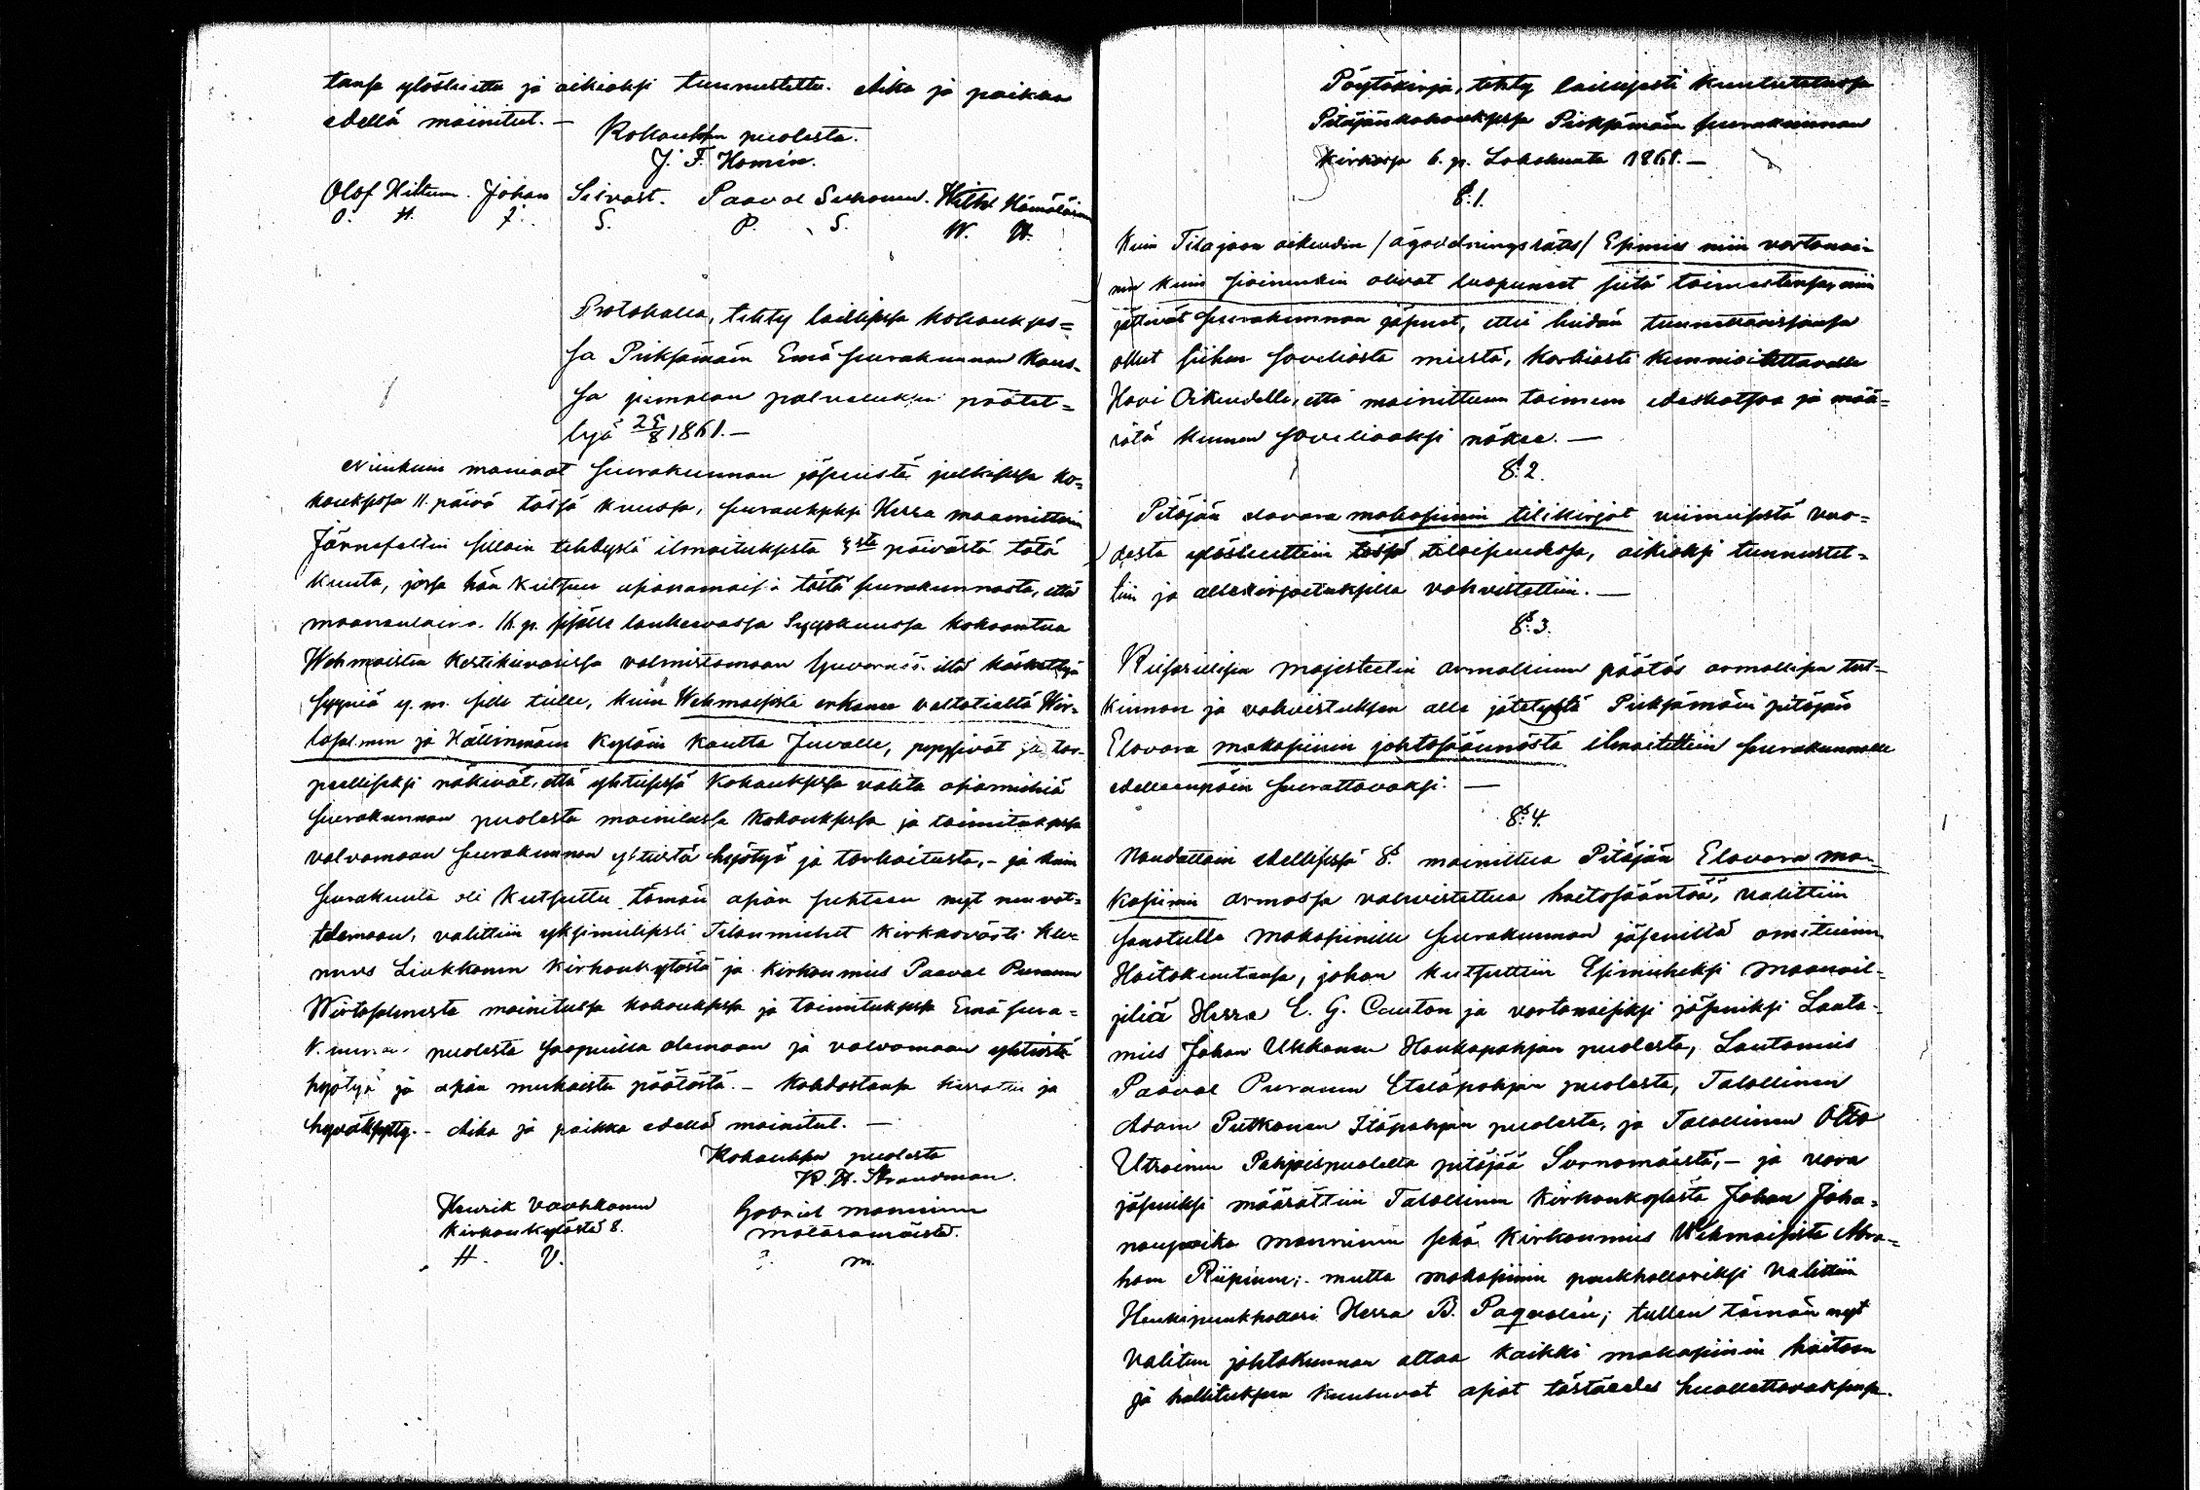 tansa ylösluettu ja oikiaksi tunnustettu. Aika ja paikka
edellä mainitut. —
Kokouksen puolesta.
J. F. Homén.
Olof Hiltunen. Johan Silvast. Paavol Surhonen. Wilhel Hämäläinen
O. H. J. S. P. S. W. H.
Protokalla, tehty laillisessa kokoukses=
sa Pieksämäen Emä seurakunnan kans-
sa jumalan palveluksen päätet=
tyä 25/8 1861. —
Niinkuin maniaat seurakunnan jäsenistä julkisessa ko=
kouksessa 11. päivä tässä kuussa, seurauksesi Herra maamittarin
Järnefeltin silloin tehdystä ilmoituksesta 3sta päivästä tätä
kuuta, jossa hän kutsuu asianomaisia tästä seurakunnasta, että
maanantaina 16. p. sisälle lankeevassa Syyskuussa kokoontua
Wehmaisten Kestikievarissa valmistamaan Guvernöriltä käskettyä
syyniä y. m. sille tielle, kuin Wehmaisista erkanee valtatieltä Wir-
tasalmen ja Hällinmäen kyläin kautta Juvalle, pyysivät ja tar-
peelliseksi näkivät, että yhteisessä kokouksessa valita asiamiehiä
seurakunnan puolesta mainitussa kokouksessa ja toimituksessa
valvomaan seurakunnan yhteistä hyötyä ja tarkoitusta, – ja kuin
seurakunta oli kutsuttu tämän asian suhteen nyt neuvot=
telemaan, valittiin yksimielisesti Tilanmiehet kirkkovärti Han=
nus Liukkonen Kirkonkylästä ja kirkonmies Paavol Puranen
Wirtasalmesta mainitussa kokouksessa ja toimituksessa Emä seura=
kunnan puolesta saapuilla olemaan ja valvomaan yhteistä
hyötyä ja asian mukaista päätöstä. – Kohdastansa luettu ja
hyväksytty. – Aika ja paikka edellä mainitut. —
Kokouksen puolesta
K. H. Strandman.
Henrik Vaahkonen Gabriel Manninen
Kirkonkylästä 8.
H. V. M.
Pöytäkirja, tehty laillisesti kuulutetussa
Pitäjänkokouksessa Pieksämäen seurakunnan
Kirkossa 6. p. Lokakuuta 1861. —
§. 1.
Kuin Tilajaon oikeuden /ägodelningsrätts/ Esimies niin vartanai=
nen kuin siainenkin olivat luopuneet siitä toimestansa, niin
jättivät seurakunnan jäsenet, ettei heidän tunnettavissansa
ollut siihen soveliasta miestä, korkiasti kunnioitettavalle
Hovi Oikeudelle, että mainittuun toimeen edeskatsoa ja mää=
rätä kunnan soveliaaksi näkee. —
§. 2.
Pitäjän elovara makasiinin tilikirjat viimeisestä vuo=
desta ylösluettiin tässä tilaisuudessa, oikiaksi tunnustet=
tiin ja allekirjoituksilla vahvistettiin. —
§. 3.
Keisarillisen Majesteetin armollinen päätös armollisen tut=
kinnon ja vahvistuksen alle jätetystä Pieksämäen pitäjän
Elovara makasiinin johtosäännöstä ilmoitettiin seurakunnalle
edelleenpäin seurattavaksi. —
§. 4.
Noudattain edellisessä §. mainittua Pitäjän Elovara ma=
kasiinin armossa vahvistettua hoitosääntöä, valittiin
sanotulle Makasiinille seurakunnan jäsenistä omituinen
Hoitokuntansa, johon kutsuttiin Esimieheksi maanvil=
jeliä Herra E. G. Cauton ja vartanaisiksi jäseniksi Lauta-
mies Johan Ukkonen Haukapohjan puolesta, Lautamies
Paavol Puranen Eteläpohjan puolesta, Talollinen
Adam Putkonen Itäpohjan puolesta, ja Talollinen Otto
Utriainen Pohjoispuolelta pitäjää Surnamäestä, – ja vara
jäseniksi määrättiin Talollinen Kirkonkylästä Johan Joha=
nanpoika Manninen sekä Kirkonmies Wehmaisista Abra=
ham Riipinen; – mutta makasiinin puukhollariksi valittiin
Henkipuukhollari Herra B. Paqvalén; tullen tämän nyt
valitun johtokunnan ottaa kaikki makasiinin hoitoon
ja hallitukseen kuuluvat asiat tästäedes huolettavaksensa.